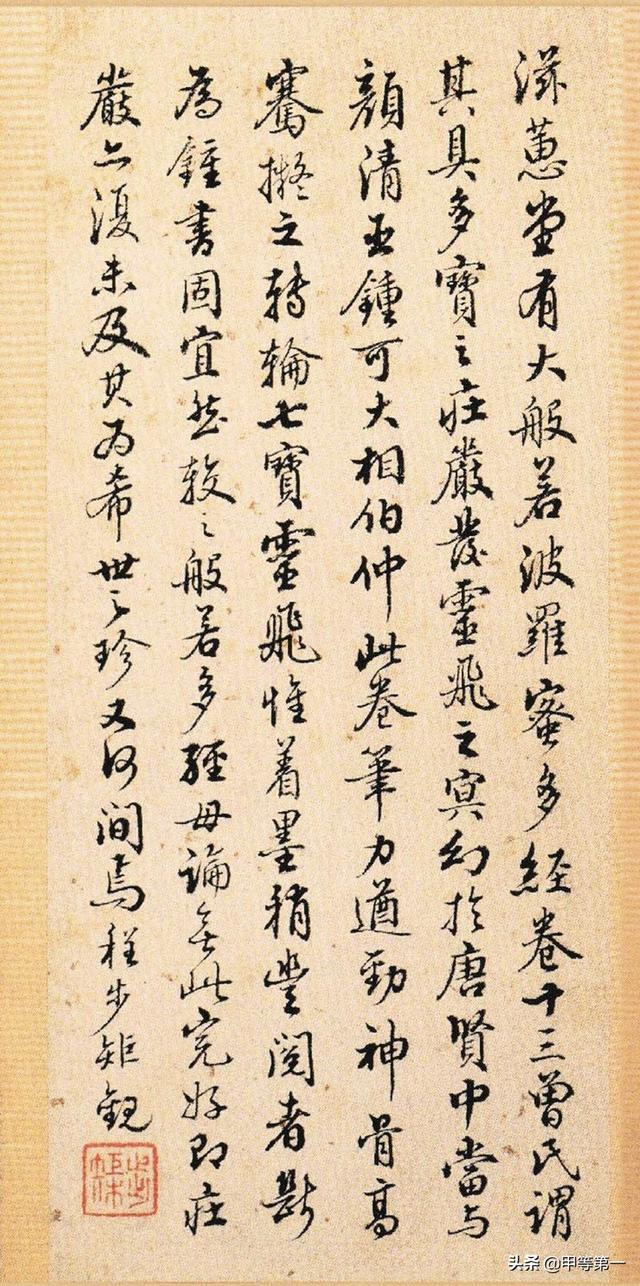 滋蕙堂有大般若波羅蜜多經卷十三曾氏謂
其具多寶之莊嚴發靈飛之冥幻於唐賢中當与
顏清臣鍾可大相伯仲此卷筆力遒勁神骨高
騫擬之轉輪七寶靈飛惟着墨稍豐閱者斷
為鍾書固宜然較之般若多經毋論無此完好即莊
嚴亦復未及其為希世之珍又何間焉程步矩觀
头条 @甲等第一